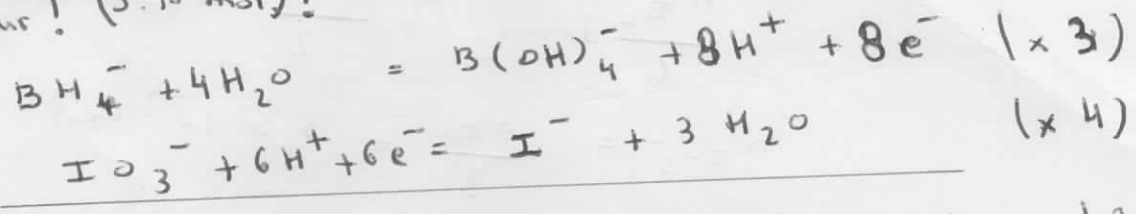 BH₄⁻ + 4H₂O = B(OH)₄⁻ + 8H⁺ + 8e⁻ (× 3)
IO₃⁻ + 6H⁺ + 6e⁻ = I⁻ + 3 H₂O (× 4)